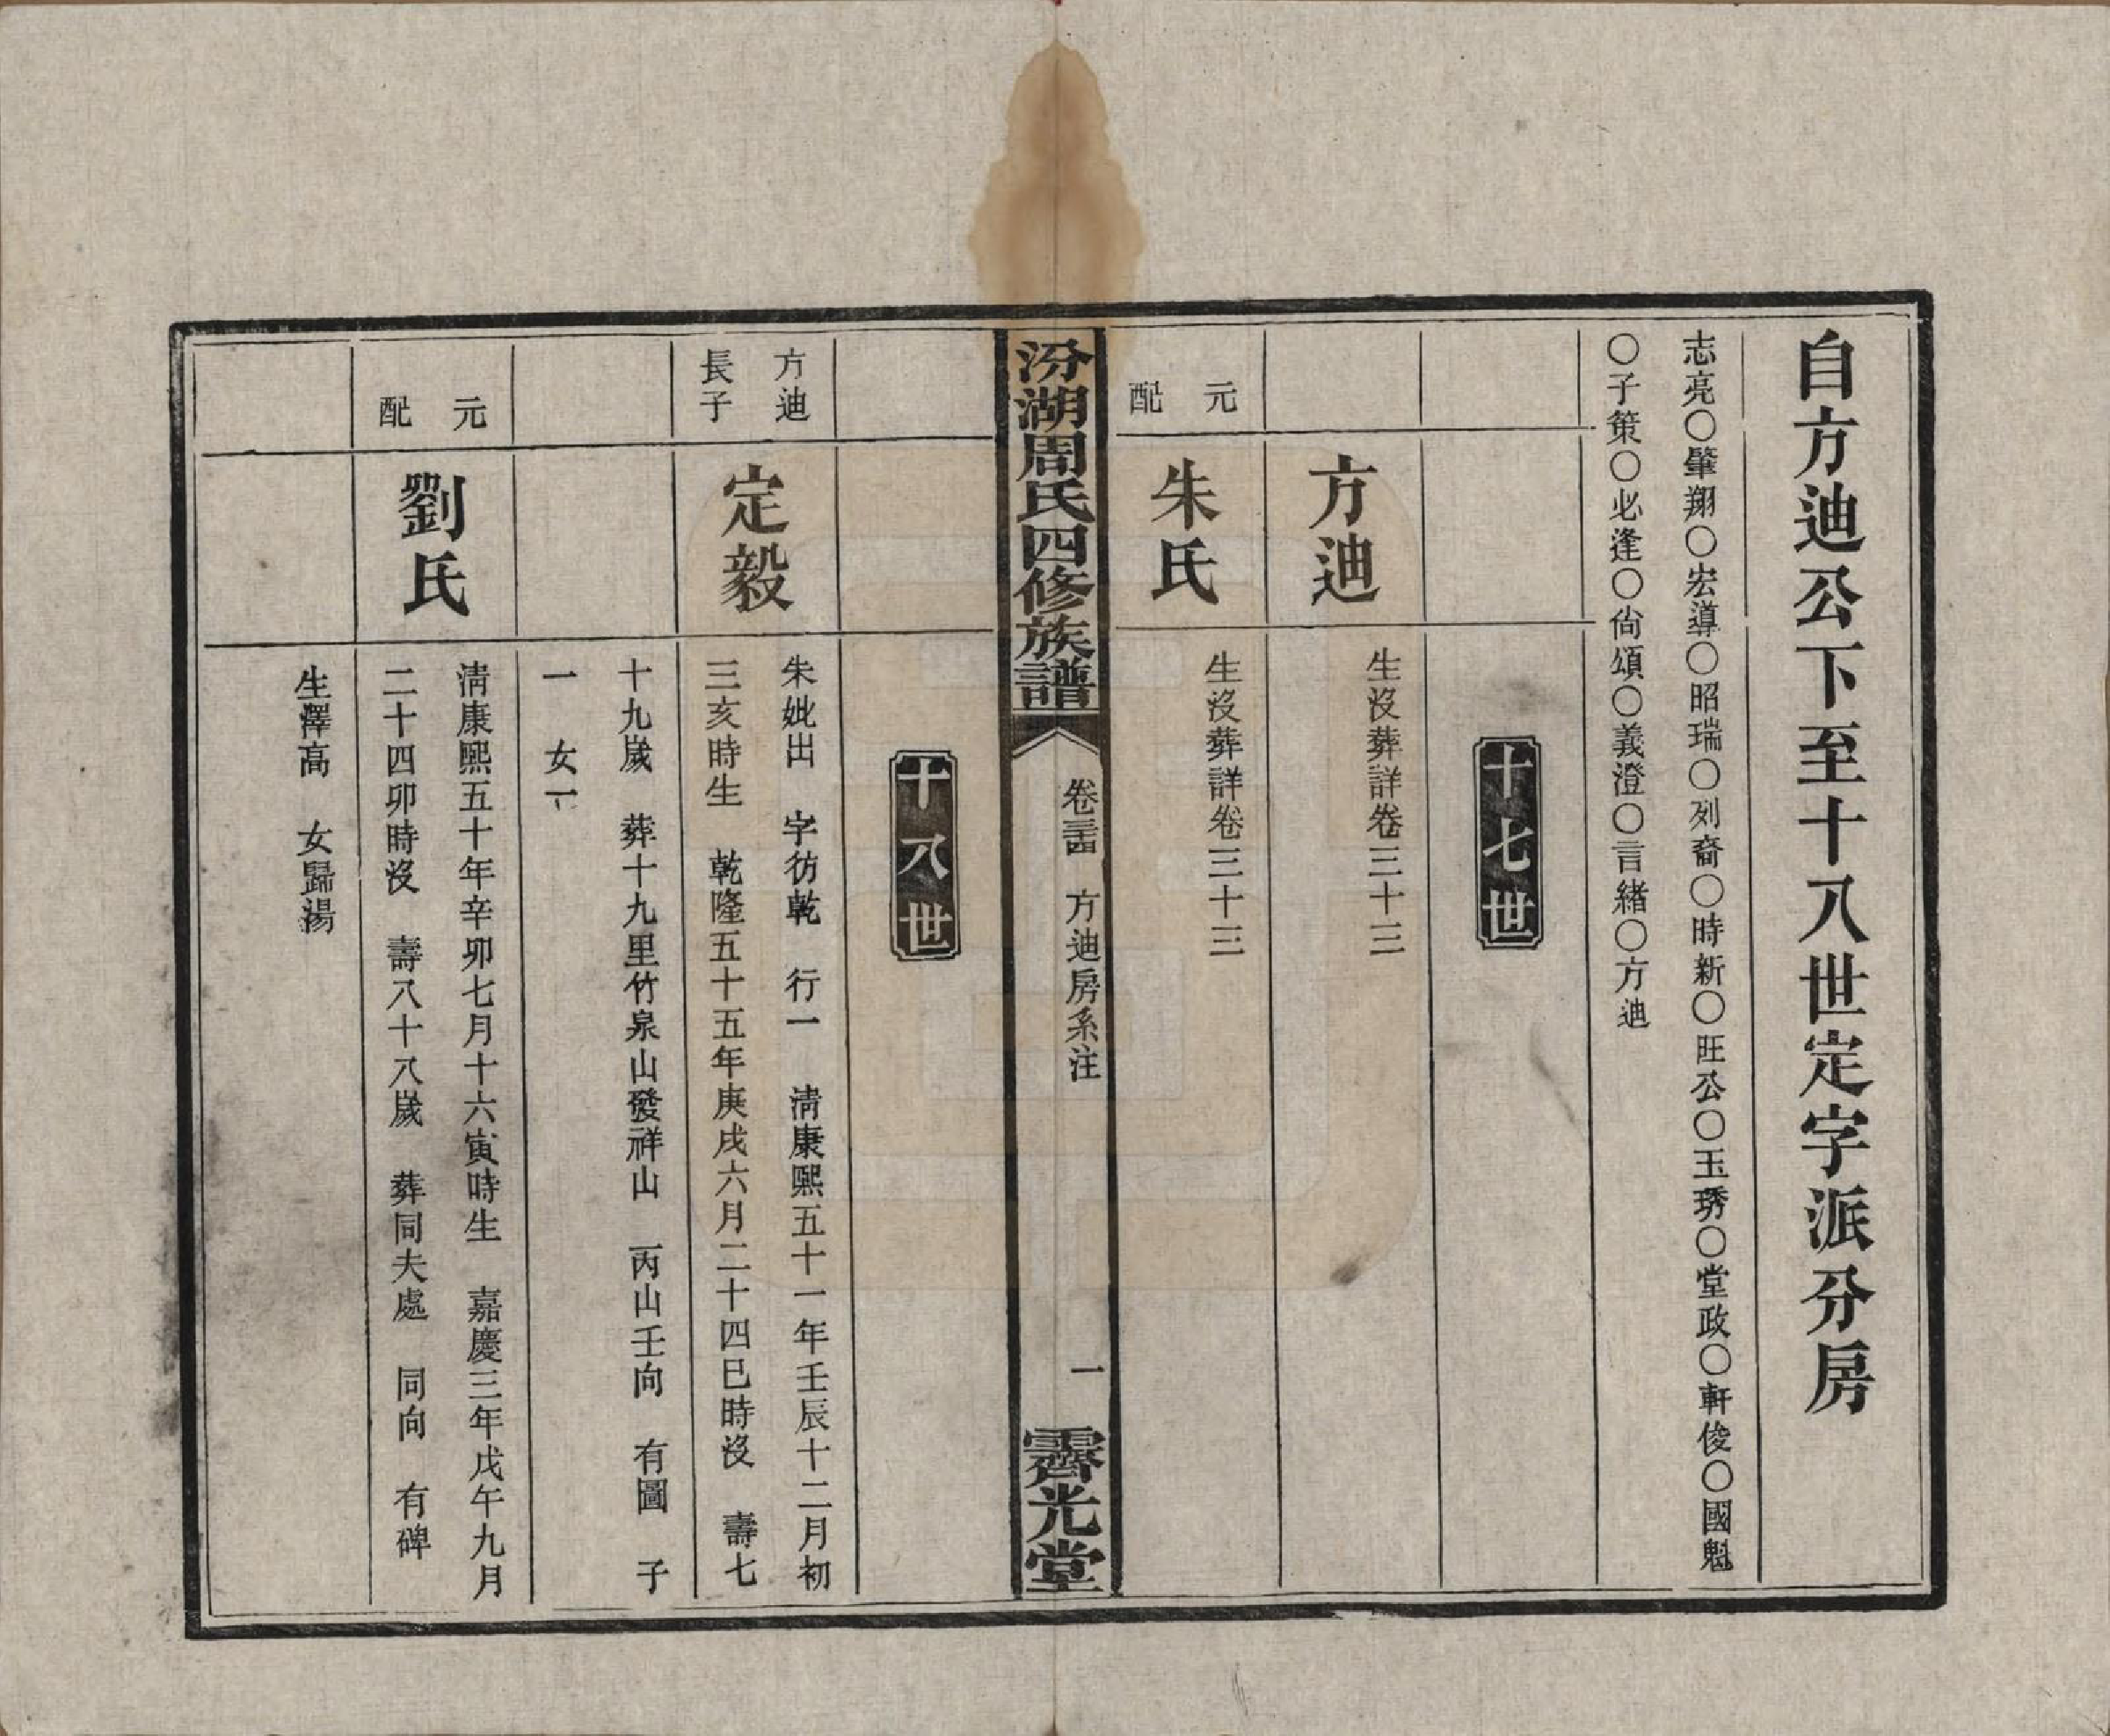 自方迪公下至十八世定字派分房
志亮〇肇翔〇宏導〇昭瑞〇列裔〇時新〇旺公〇玉琇〇堂政〇軒俊〇國魁
〇子策〇必逢〇尙頌〇義澄〇言緒〇方迪
十七世
方迪
生沒葬詳卷三十三
元配
朱氏
生沒葬詳卷三十三
汾湖周氏四修族譜
卷三十四 方迪房系注
一
霽光堂
十八世
方迪
長子
定毅
朱妣出 字彷乾 行一 淸康熙五十一年壬辰十二月初
三亥時生 乾隆五十五年庚戌六月二十四巳時沒 壽七
十九歲 葬十九里竹泉山發祥山 丙山壬向 有圖 子
一 女一
元配
劉氏
淸康熙五十年辛卯七月十六寅時生 嘉慶三年戊午九月
二十四卯時沒 壽八十八歲 葬同夫處 同向 有碑
生澤高 女歸湯